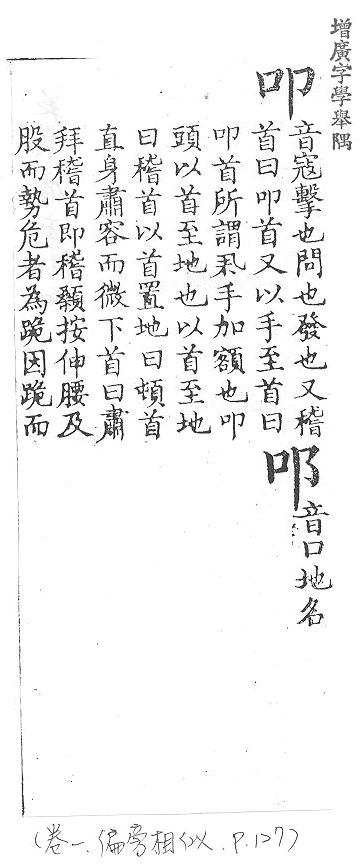 增廣字學舉隅
叩
音寇擊也問也發也又稽
首曰叩首又以手至首曰
叩首所謂以手加額也叩
頭以首至地也以首至地
曰稽首以首置地曰頓首
直身肅容而微下首曰肅
拜稽首即稽顙按伸腰及
股而勢危者為跪因跪而
𠮟
音口地名
(卷一、偏旁相似、P.127)